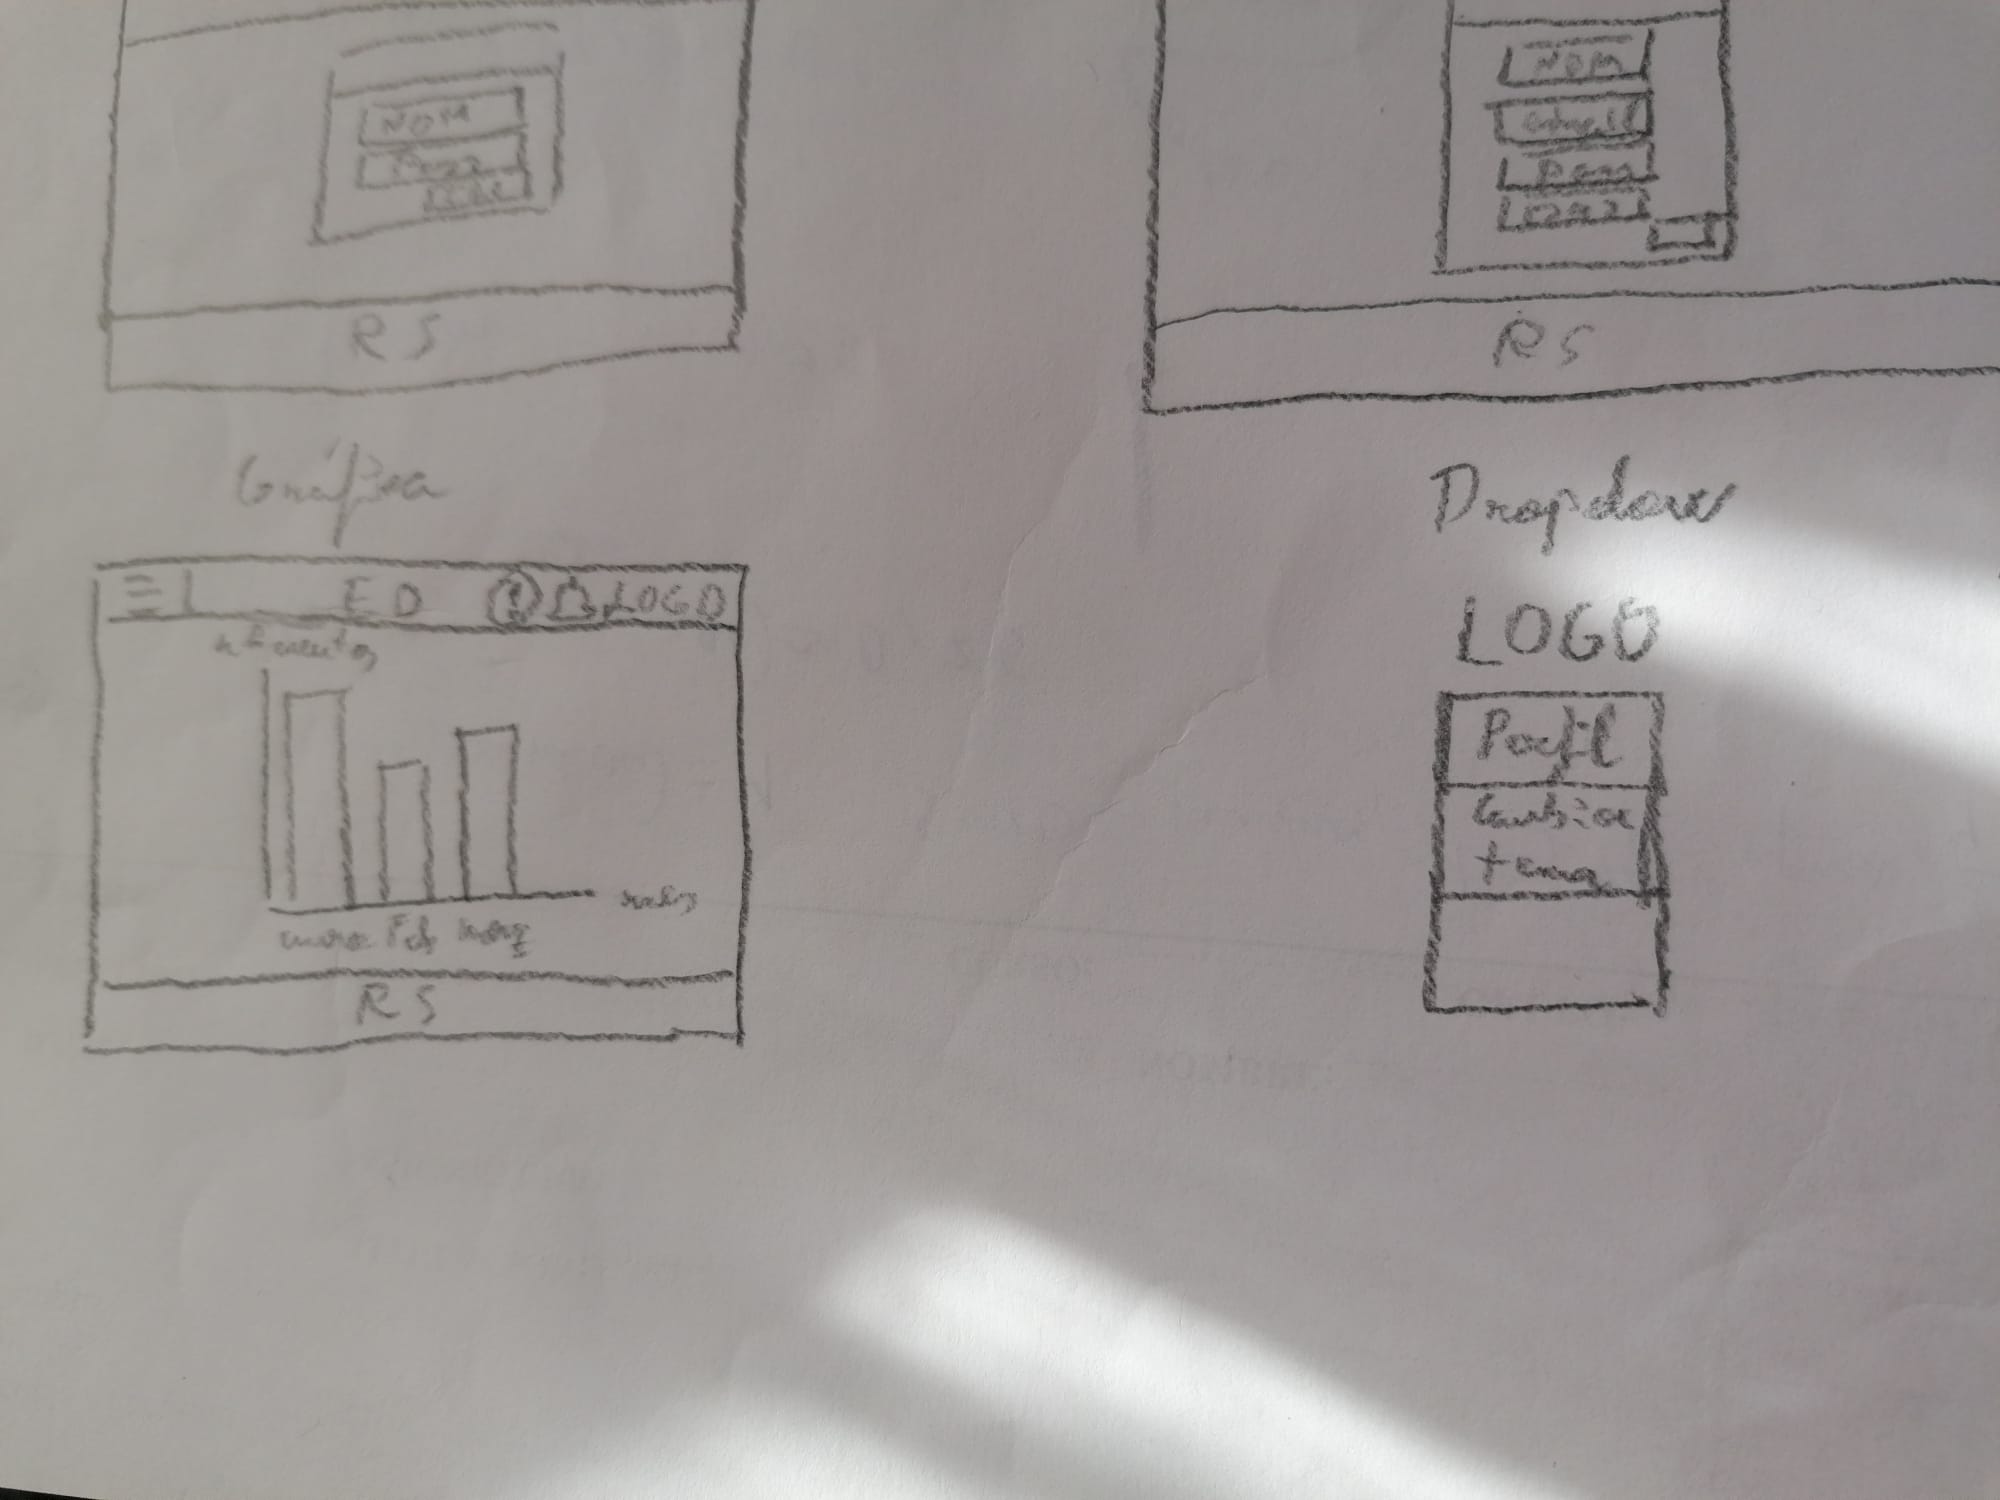 NOM
Pass
RS
NOM
Email
Pass
RS
Gráfica
E D LOGO
nº eventos
meses
Feb
RS
Dropdow
LOGO
Perfil
Cambiar
tema